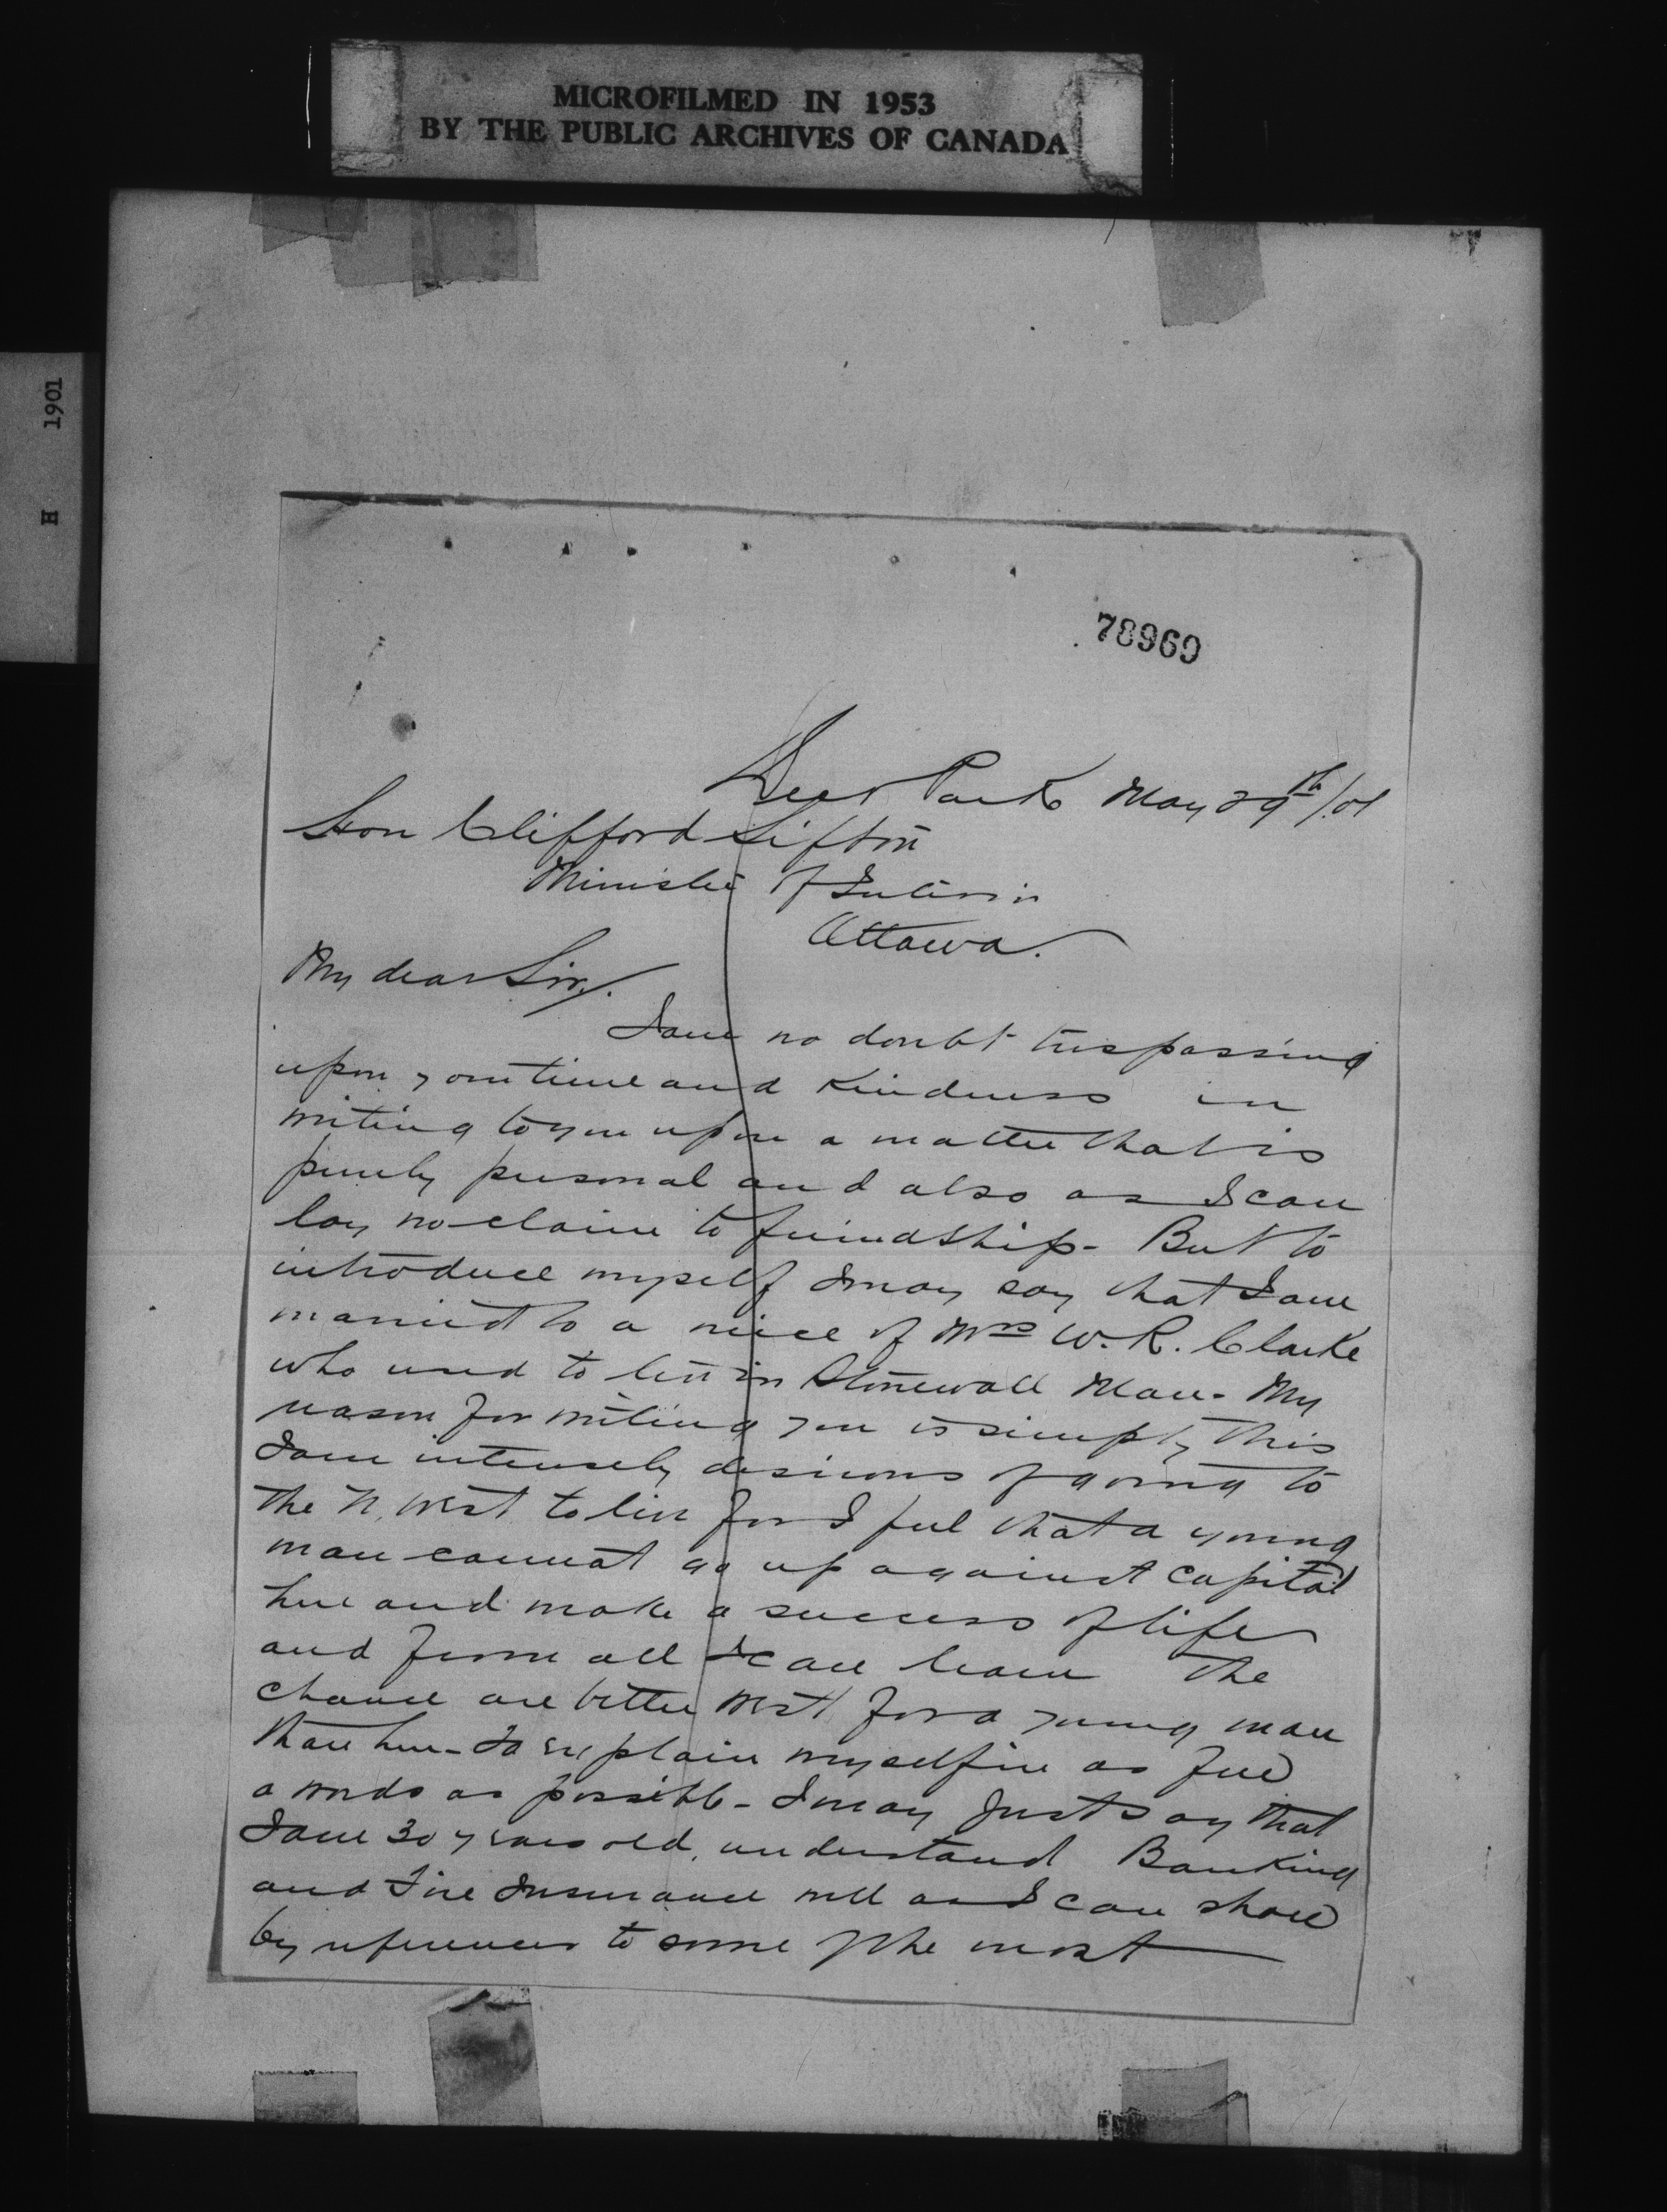 MICROFILMED IN 1953
BY THE PUBLIC ARCHIVES OF CANADA
H 1901
78969
Deer Park May 29th/01
Hon Clifford Sifton
Minister of Interior
Ottawa.
My dear Sir/.
I am no doubt trespassing
upon your time and kindness in
writing to you upon a matter that is
purely personal and also as I can
lay no claim to friendship - But to
introduce myself I may say that I am
married to a niece of Mrs W. R. Clarke
who used to live in Stonewall Man - My
reason for writing you is simply this
I am intensely desirous of going to
the N. West to live for I feel that a young
man cannot go up against capital
here and make a success of life
and from all I can learn the
chance are better West for a young man
than here - To explain myself in as few
a words as possible - I may just say that
I am 30 years old, understand Banking
and Fire Insurance well as I can show
by references to some of the most